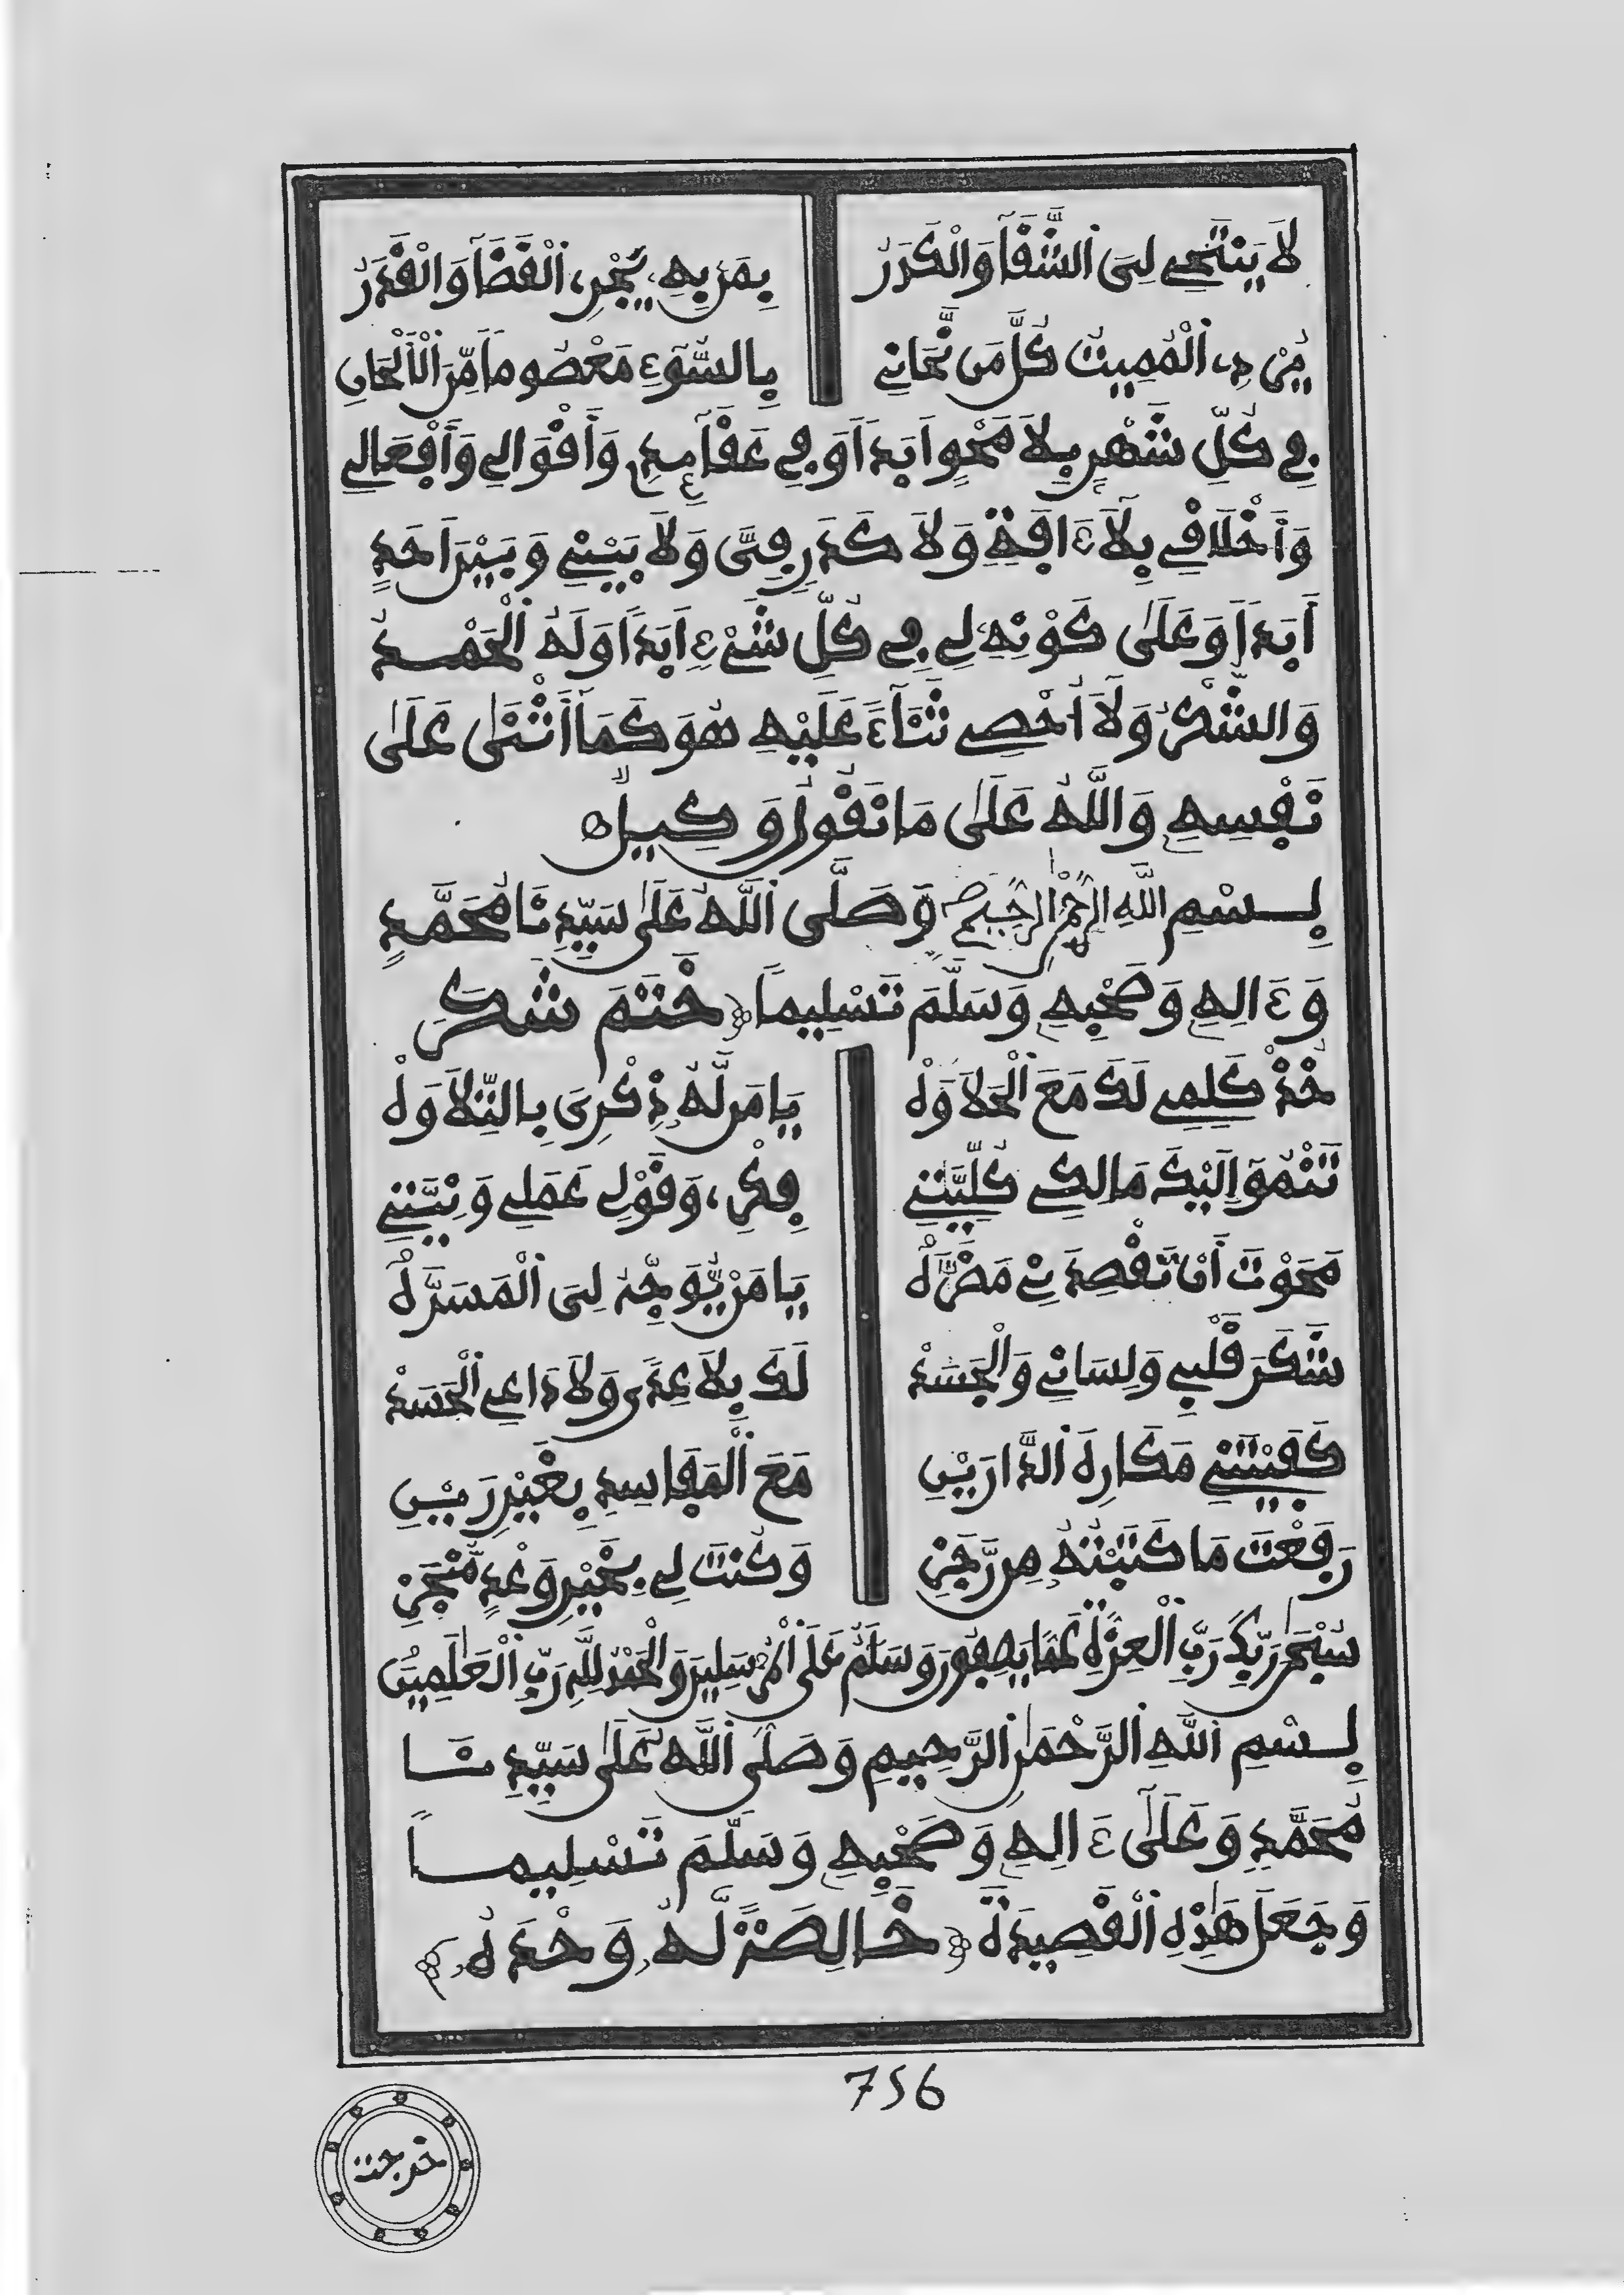 لَا يَنْتَحِي لِيَ الشَّقَا وَالْكَدَرُ بِمَن بِهِ يَجْرِي الْقَضَا وَالْقَدَرُ
الْمُمِيتُ كُلَّ مَن نَّحَانِي بِالسُّوءِ مَعْصُومًا مِّنَ الْأَلْحَانِ
فِي كُلِّ شَهْرٍ بِلَا مَحْوٍ أَبَدًا وَفِي عَقَائِدِي وَأَقْوَالِي وَأَفْعَالِي
وَأَخْلَاقِي بِلَا ءَافَةٍ وَلَا كَدَرٍ فِيَّ وَلَا بَيْنِي وَبَيْنَ أَحَدٍ
أَبَدًا وَعَلَى كَوْنِهِ لِي فِي كُلِّ شَيْءٍ أَبَدًا وَلَهُ الْحَمْدُ
وَالشُّكْرُ وَلَا أُحْصِي ثَنَاءً عَلَيْهِ هُوَ كَمَا أَثْنَى عَلَى
نَفْسِهِ وَاللَّهُ عَلَى مَا نَقُولُ وَكِيلٌ
بِسْمِ اللَّهِ الرَّحْمَٰنِ الرَّحِيمِ وَصَلَّى اللَّهُ عَلَى سَيِّدِنَا مُحَمَّدٍ
وَءَالِهِ وَصَحْبِهِ وَسَلَّمَ تَسْلِيمًا خَتَمَ شَكَرَ
خُذْ كَلِمِي لَكَ مَعَ الْحَلَاوَهْ يَا مَن لَّهُ ذِكْرِيَ بِالتِّلَاوَهْ
تَنْمُو إِلَيْكَ مَالِكِي كُلِّيَّتِي فِكْرِي وَقَوْلِي عَمَلِي وَنِيَّتِي
مَحَوْتَ أَن تَقْصِدَنِي مَضَرَّهْ يَا مَن يُّوَجِّهُ لِيَ الْمَسَرَّهْ
شَكَرَ قَلْبِي وَلِسَانِي وَالْجَسَدْ لَكَ بِلَا عِدًى وَلَا دَاعِي الْحَسَدْ
كَفَيْتَنِي مَكَارِهَ الدَّارَيْنِ مَعَ الْمَفَاسِدِ بِغَيْرِ رَيْنِ
رَفَعْتَ مَا كَتَبْتُهُ مِن رَّجَزِ وَكُنتَ لِي بِخَيْرِ وَعْدٍ مُّنْجَزِ
سُبْحَٰنَ رَبِّكَ رَبِّ الْعِزَّةِ عَمَّا يَصِفُونَ وَسَلَٰمٌ عَلَى الْمُرْسَلِينَ وَالْحَمْدُ لِلَّهِ رَبِّ الْعَٰلَمِينَ
بِسْمِ اللَّهِ الرَّحْمَٰنِ الرَّحِيمِ وَصَلَّى اللَّهُ عَلَى سَيِّدِنَا
مُحَمَّدٍ وَعَلَى ءَالِهِ وَصَحْبِهِ وَسَلَّمَ تَسْلِيمًا
وَجَعَلَ هَٰذِهِ الْقَصِيدَةَ خَالِصَةً لَّهُ وَحْدَهُ
756
خدجت